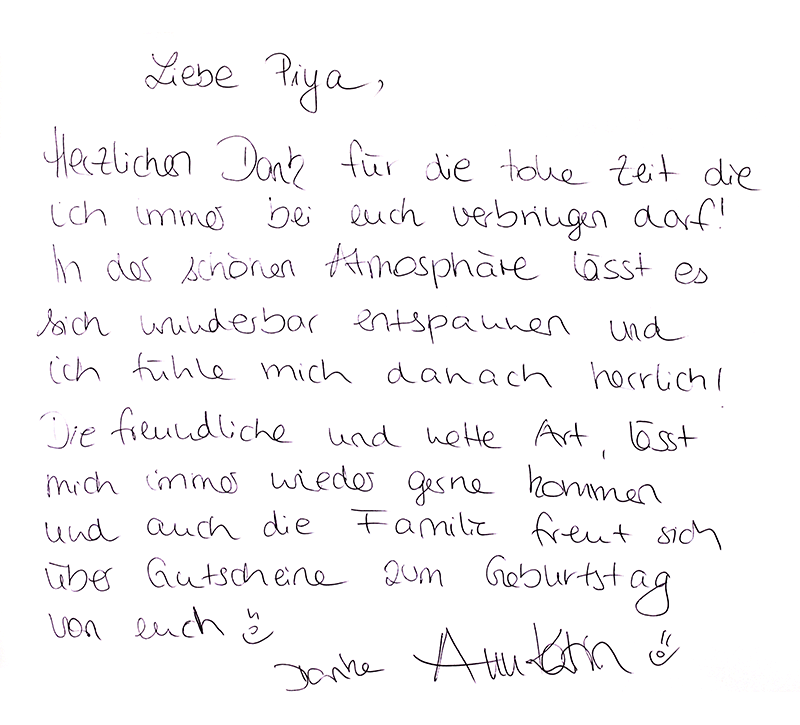 Liebe Piya,
Herzlichen Dank für die tolle Zeit die
ich immer bei euch verbringen darf!
In der schönen Atmosphäre lässt es
sich wunderbar entspannen und
ich fühle mich danach herrlich!
Die freundliche und nette Art, lässt
mich immer wieder gerne kommen
und auch die Familie freut sich
über Gutscheine zum Geburtstag
von euch
Danke